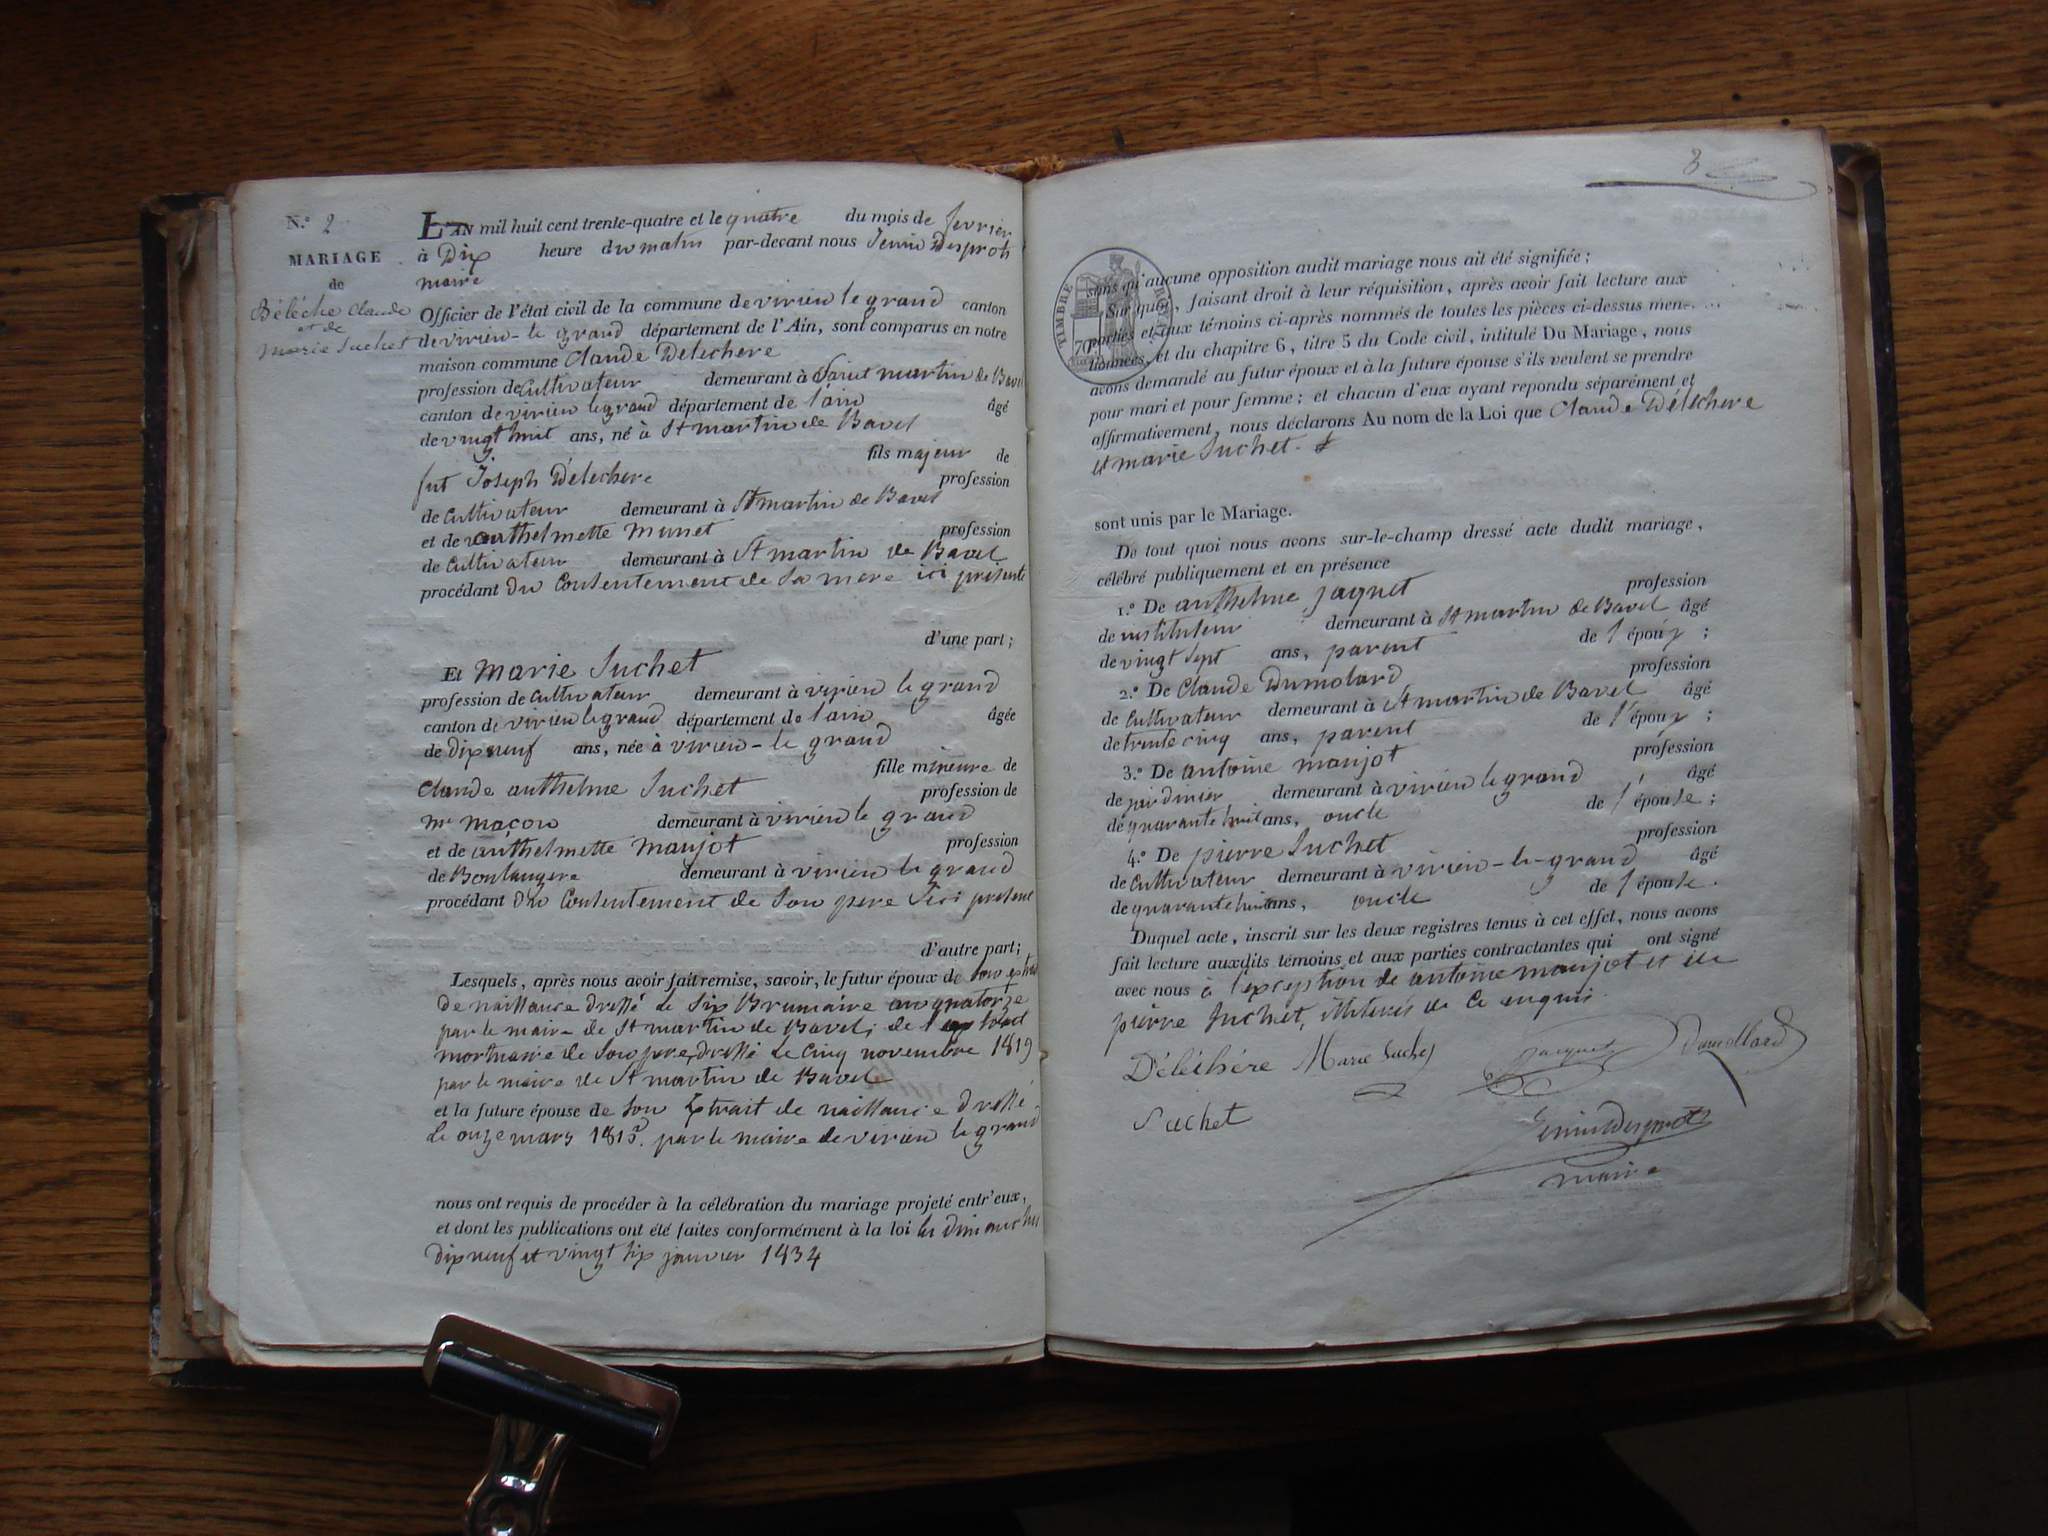 N.° 2
MARIAGE
de
Béléche Claude
et de
marie Suchet
L'AN mil huit cent trente-quatre et le quatre du mois de fevrier
à Dix heure du matin par-devant nous Jenin Desprots
maire
Officier de l'état civil de la commune de virieu le grand canton
de virieu-le grand département de l'Ain, sont comparus en notre
maison commune Claude Délechere
profession de Cultivateur demeurant à Saint martin de Bavel
canton de virieu le grand département de l'ain âgé
de vingt huit ans, né à St martin de Bavel
fils majeur de
fut Joseph Délechere profession
de Cultivateur demeurant à St martin de Bavel
et de anthelmette Munet profession
de Cultivateur demeurant à St martin de Bavel
procédant du Consentement de Sa mere ici présente
d'une part ;
Et Marie Suchet
profession de Cultivateur demeurant à virieu le grand
canton de virieu le grand département de l'ain âgée
de Dix neuf ans, née à virieu-le grand
fille mineure de
Claude anthelme Suchet profession de
mr maçon demeurant à virieu le grand
et de anthelmette Maujot profession
de Boulangere demeurant à virieu le grand
procédant du Consentement de Son pere Ici présent
d'autre part ;
Lesquels, après nous avoir fait remise, savoir, le futur époux de Son extrait
de naissance dressé le Six Brumaire an quatorze
par le maire de St martin de Bavel, de l'extrait
mortuaire de Son pere dressé le Cinq novembre 1819
par le maire de St martin de Bavel
et la future épouse de Son Extrait de naissance dressé
le onze mars 1815. par le maire de virieu le grand
nous ont requis de procéder à la célébration du mariage projeté entr'eux,
et dont les publications ont été faites conformément à la loi les dimanches
Dix neuf et vingt Six janvier 1834
3
TIMBRE ROYAL
70
sans qu'aucune opposition audit mariage nous ait été signifiée ;
Sur quoi, faisant droit à leur réquisition, après avoir fait lecture aux
parties et aux témoins ci-après nommés de toutes les pièces ci-dessus men-
tionnées, et du chapitre 6, titre 5 du Code civil, intitulé Du Mariage, nous
avons demandé au futur époux et à la future épouse s'ils veulent se prendre
pour mari et pour femme ; et chacun d'eux ayant repondu séparément et
affirmativement, nous déclarons Au nom de la Loi que Claude Délechere
et marie Suchet.
sont unis par le Mariage.
De tout quoi nous avons sur-le-champ dressé acte dudit mariage,
célébré publiquement et en présence
1.° De anthelme Jaquet profession
de instituteur demeurant à St martin de Bavel âgé
de vingt Sept ans, parent de l'époux ;
2.° De Claude Dumolard profession
de Cultivateur demeurant à St martin de Bavel âgé
de trente cinq ans, parent de l'époux ;
3.° De antoine maujot profession
de jardinier demeurant à virieu le grand âgé
de quarante huit ans, oncle de l'épouse ;
4.° De pierre Suchet profession
de Cultivateur demeurant à virieu-le-grand âgé
de quarante huit ans, oncle de l'épouse.
Duquel acte, inscrit sur les deux registres tenus à cet effet, nous avons
fait lecture auxdits témoins et aux parties contractantes qui ont signé
avec nous à l'exception de antoine maujot et de
pierre Suchet, illiterés de ce enquis.
Déléchére Marie Suchet Jacquet Dumollard
Suchet
Jenin Desprots
maire